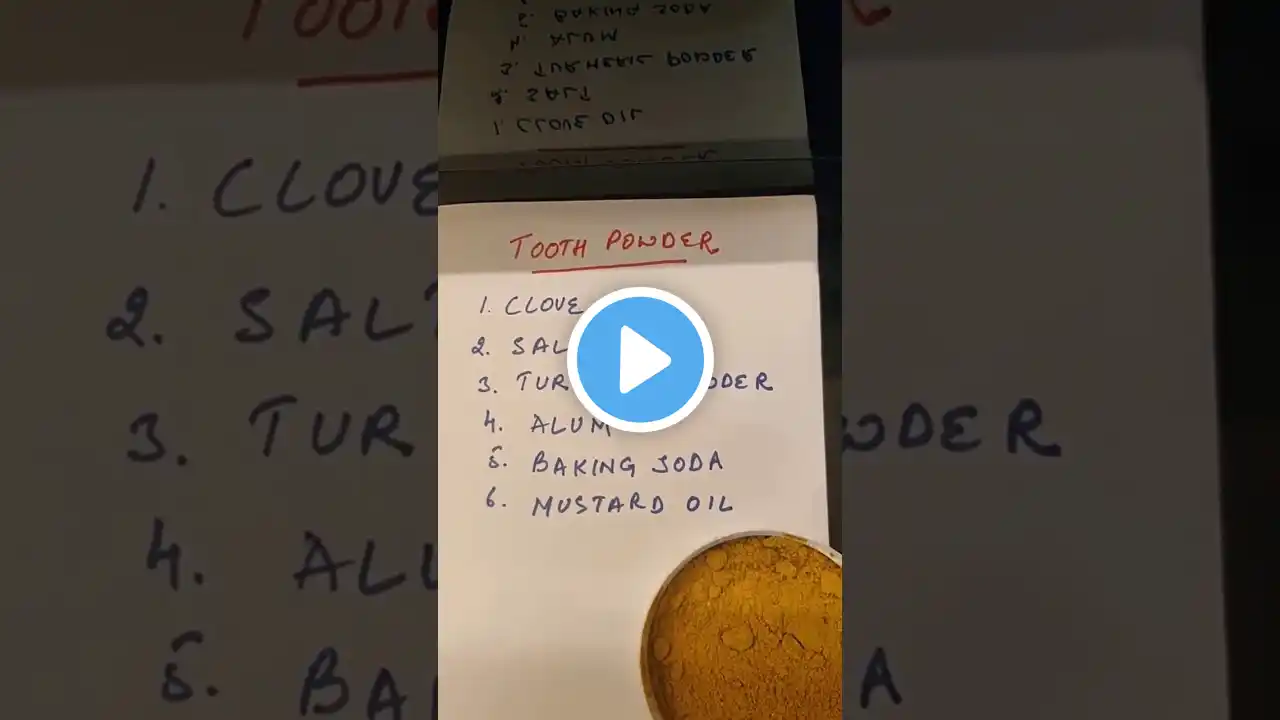 TOOTH POWDER
1. CLOVE OIL
2. SALT
3. TURMERIC POWDER
4. ALUM
5. BAKING SODA
6. MUSTARD OIL